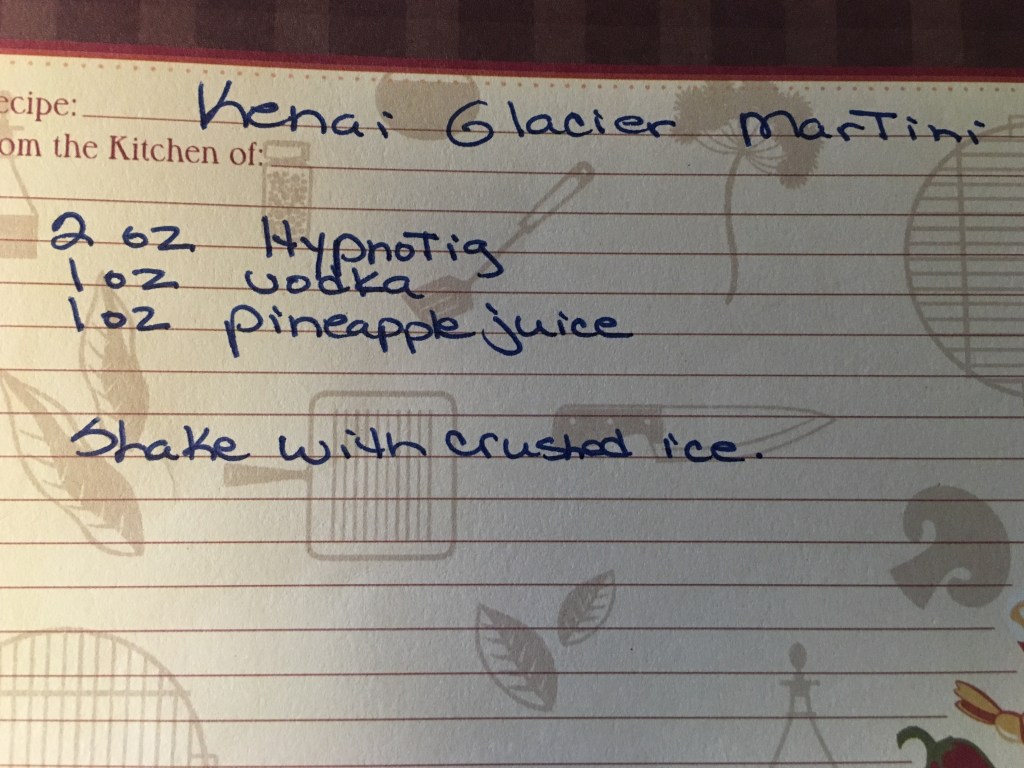 ecipe: Kenai Glacier Martini
om the Kitchen of:
2 oz Hypnotiq
1 oz vodka
1 oz pineapple juice
Shake with crushed ice.